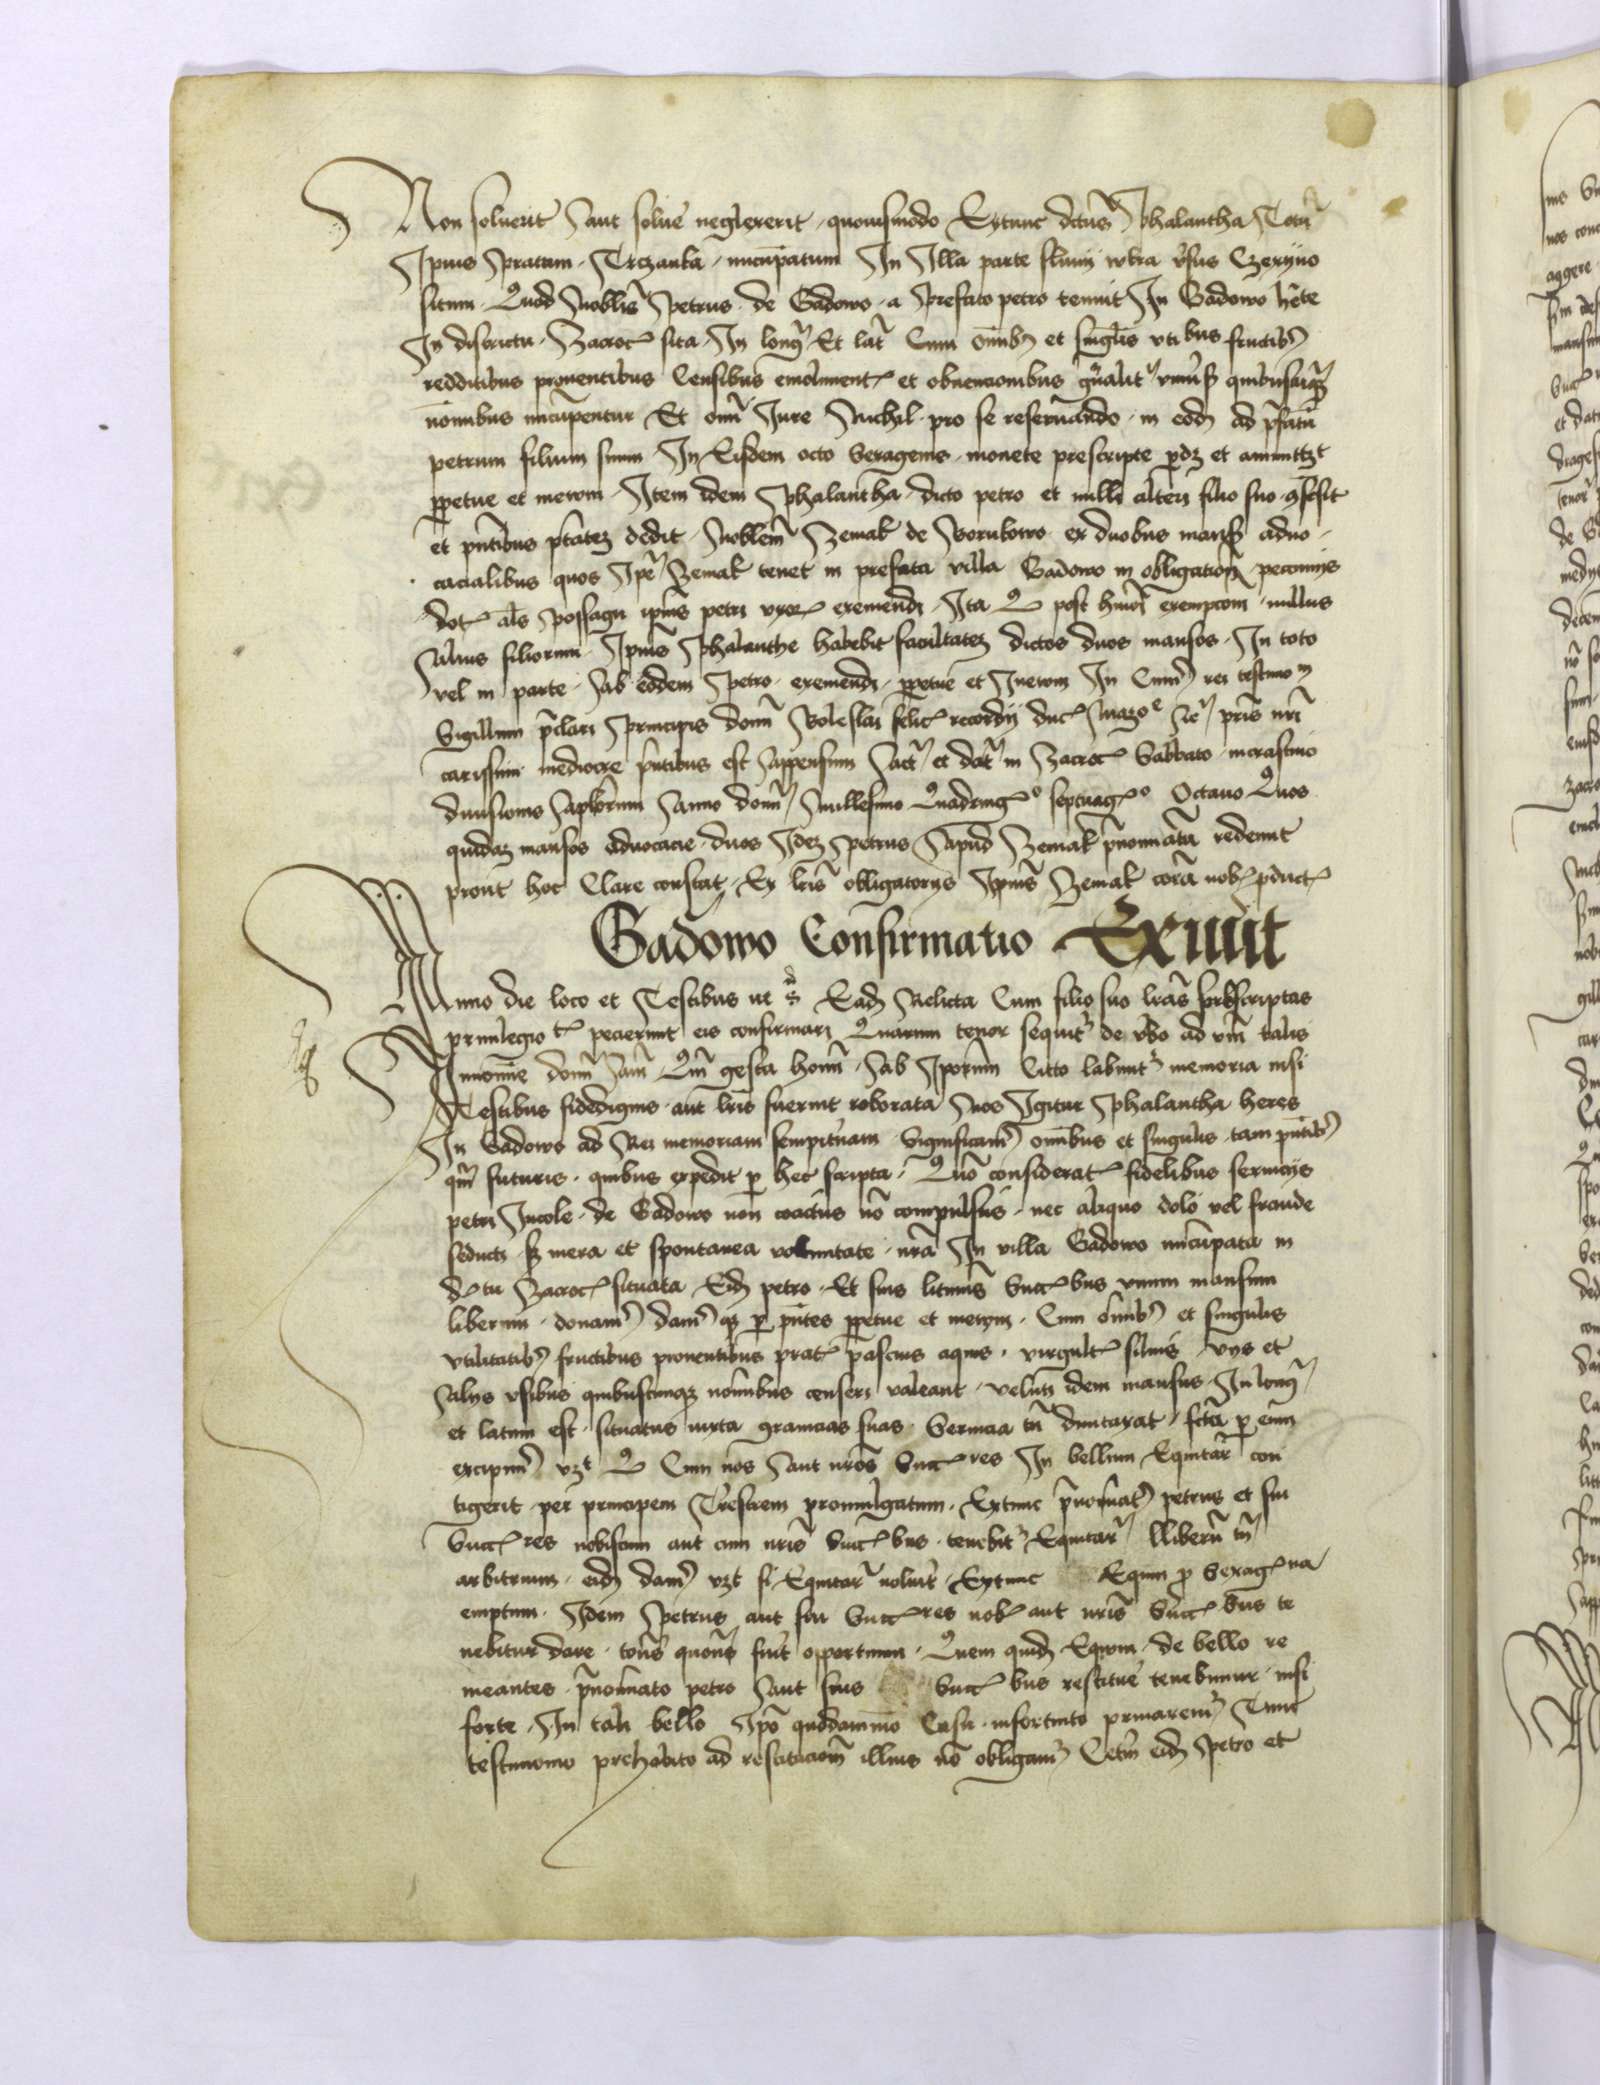 Non soluerit Aut soluē neglexerit quouismodo Extunc dictus Phalantha Totū
Ipius Pratum Trczanka nūcupatum In Illa parte fluuij wkra vsus Czerijno
situm Quod Nobilis Petrus de Gadowo a Prefato petro tenuit In Gadowo
In districtu Zacroc sita In long Et lat Cum omibꝫ et singlis vtibus fructibꝫ
redditibus prouentibus Censibus emolument et obuencionibus gñalit
nōinibus nūcupentur Et omi Iure Nichil pro se reseruando in eodꝫ ad pfatū
petrum filium suum In Eisdem octo Sexagenis monete prescripte
ppetue et in ewom Item idem Phalantha dicto petro et nulli alteri filio suo
et pntibus ptatez dedit Nobilem Zemak de Borukowo ex duobus mansꝫ aduo
cacialibus quos Ipe Zemak tenet in prefata villa Gadowo in obligacione pecunijs
dot als Possagu ipius petri vxor exemendi Ita Q post hmōi exempcom nullus
Alius filiorum Ipius Phalanthe habebit facultatez dictos duos mansos In toto
vel in parte Ab eodem Petro exemendi ppetue et In ewom In Cuius rei testimo
Sigillum pclari Principis domi Boleslai felic recordij duc Mazo pris nri
carissimi mediocre pntibus est Appensum Act et dat in Zacroc Sabbato in crastino
diuisionis Aplorum Anno domi Millesimo Quadring septuag Octauo Quos
quidaz mansos aduocacie duos Idez Petrus Apud Zemak pnominata redemit
prout hoc Clare constat Ex lris obligatorijs Ipius Zemak corā nob pduct
Gadowo Confirmatio Exiuit
Anno die loco et Testibus ut s Eadꝫ Relicta Cum filio suo lras scriptas
priuilegio pecierunt eis confirmari Quarum tenor sequit de vbo ad vm talis
In nomine domi Am Qm gesta homi Ab Ipорum Citto labunt memoria nisi
Testibus fidedignis aut lris fuerint roborata Nos Igitur Phalantha heres
In Gadowo ad Rei memoriam sempitnam Significam omibus et singulis tam pntibꝫ
qm futuris quibus expedit p hec scripta Quō considerat fidelibus seruicijs
petri Incole de Gadowo non coactus nō compulsus nec aliquo dolo vel fraude
seducti sꝫ mera et spontanea voluntate nra In villa Gadowo nūcupata in
dtu Zacroc situata Eidꝫ petro Et suis litimis Succ bus vnum mansum
liberum donam dam qꝫ p pntes ppetue et in ewom Cum omibꝫ et singulis
vtilitatibꝫ fructibus prouentibus prat pascuis aquis virgult siluis vijs et
Alijs vsibus quibuscunqꝫ nōinibus censeri valeant velut idem mansus In long
et latum est situatus iuxta granicias suas Seruicia tn dumtaxat fcta p eum
excipim vzt Q Cum nos Aut nros Succ res In bellum Equitar con
tigerit per principem Trestrem promulgatum Extunc pnominat petrus et sui
Succ res nobiscum aut cum nris Succ bus tenebit Equitar lliberū tn
arbitrium eidꝫ dam vzt si Equitar voluit Extunc Equm p Sexag na
emptum Idem Petrus aut sui Succ res nob aut nris Succ bus te
nebitur dare tons quons fuit opportunum Quem quidꝫ Equom de bello re
meantes pnominato petro Aut suis Succ bus restitue tenebimur nisi
forte In tali bello Ipo quodammo Casu infortuito priuarem Tunc
testimonio prehabito ad restitucionem illius nō obligam Cetm eidꝫ Petro et